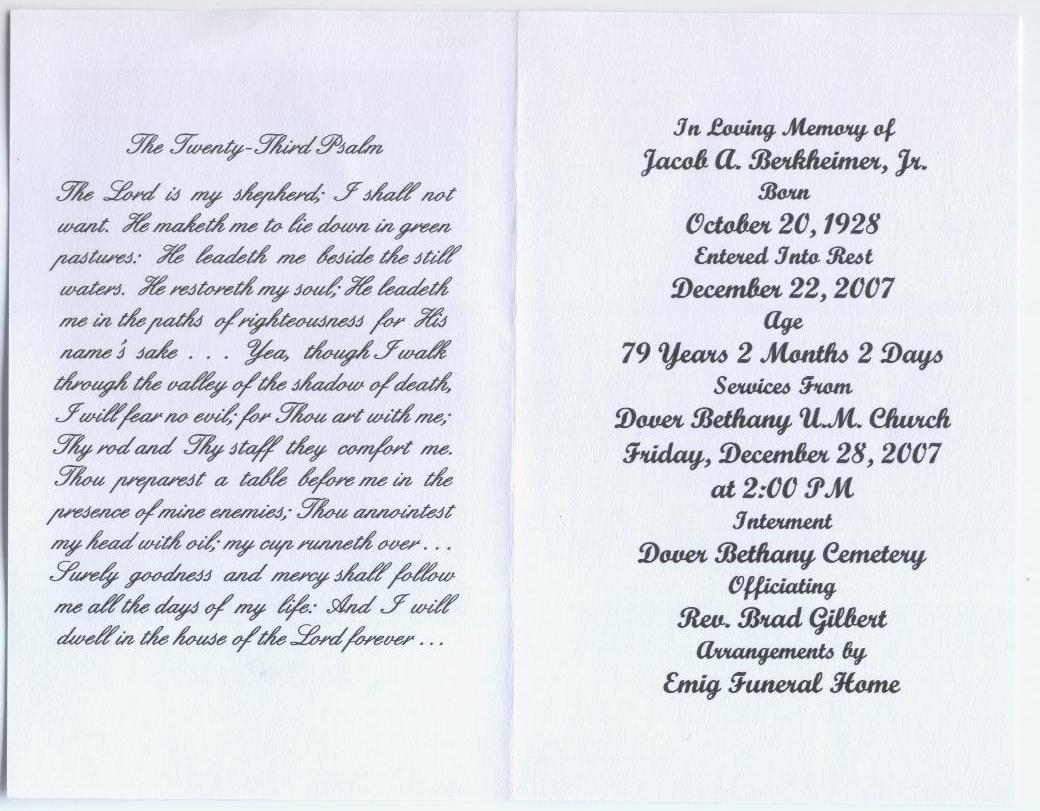 The Twenty-Third Psalm
The Lord is my shepherd; I shall not
want. He maketh me to lie down in green
pastures: He leadeth me beside the still
waters. He restoreth my soul; He leadeth
me in the paths of righteousness for His
name's sake . . . Yea, though I walk
through the valley of the shadow of death,
I will fear no evil; for Thou art with me;
Thy rod and Thy staff they comfort me.
Thou preparest a table before me in the
presence of mine enemies; Thou annointest
my head with oil; my cup runneth over . . .
Surely goodness and mercy shall follow
me all the days of my life: And I will
dwell in the house of the Lord forever . . .
In Loving Memory of
Jacob A. Berkheimer, Jr.
Born
October 20, 1928
Entered Into Rest
December 22, 2007
Age
79 Years 2 Months 2 Days
Services From
Dover Bethany U.M. Church
Friday, December 28, 2007
at 2:00 PM
Interment
Dover Bethany Cemetery
Officiating
Rev. Brad Gilbert
Arrangements by
Emig Funeral Home